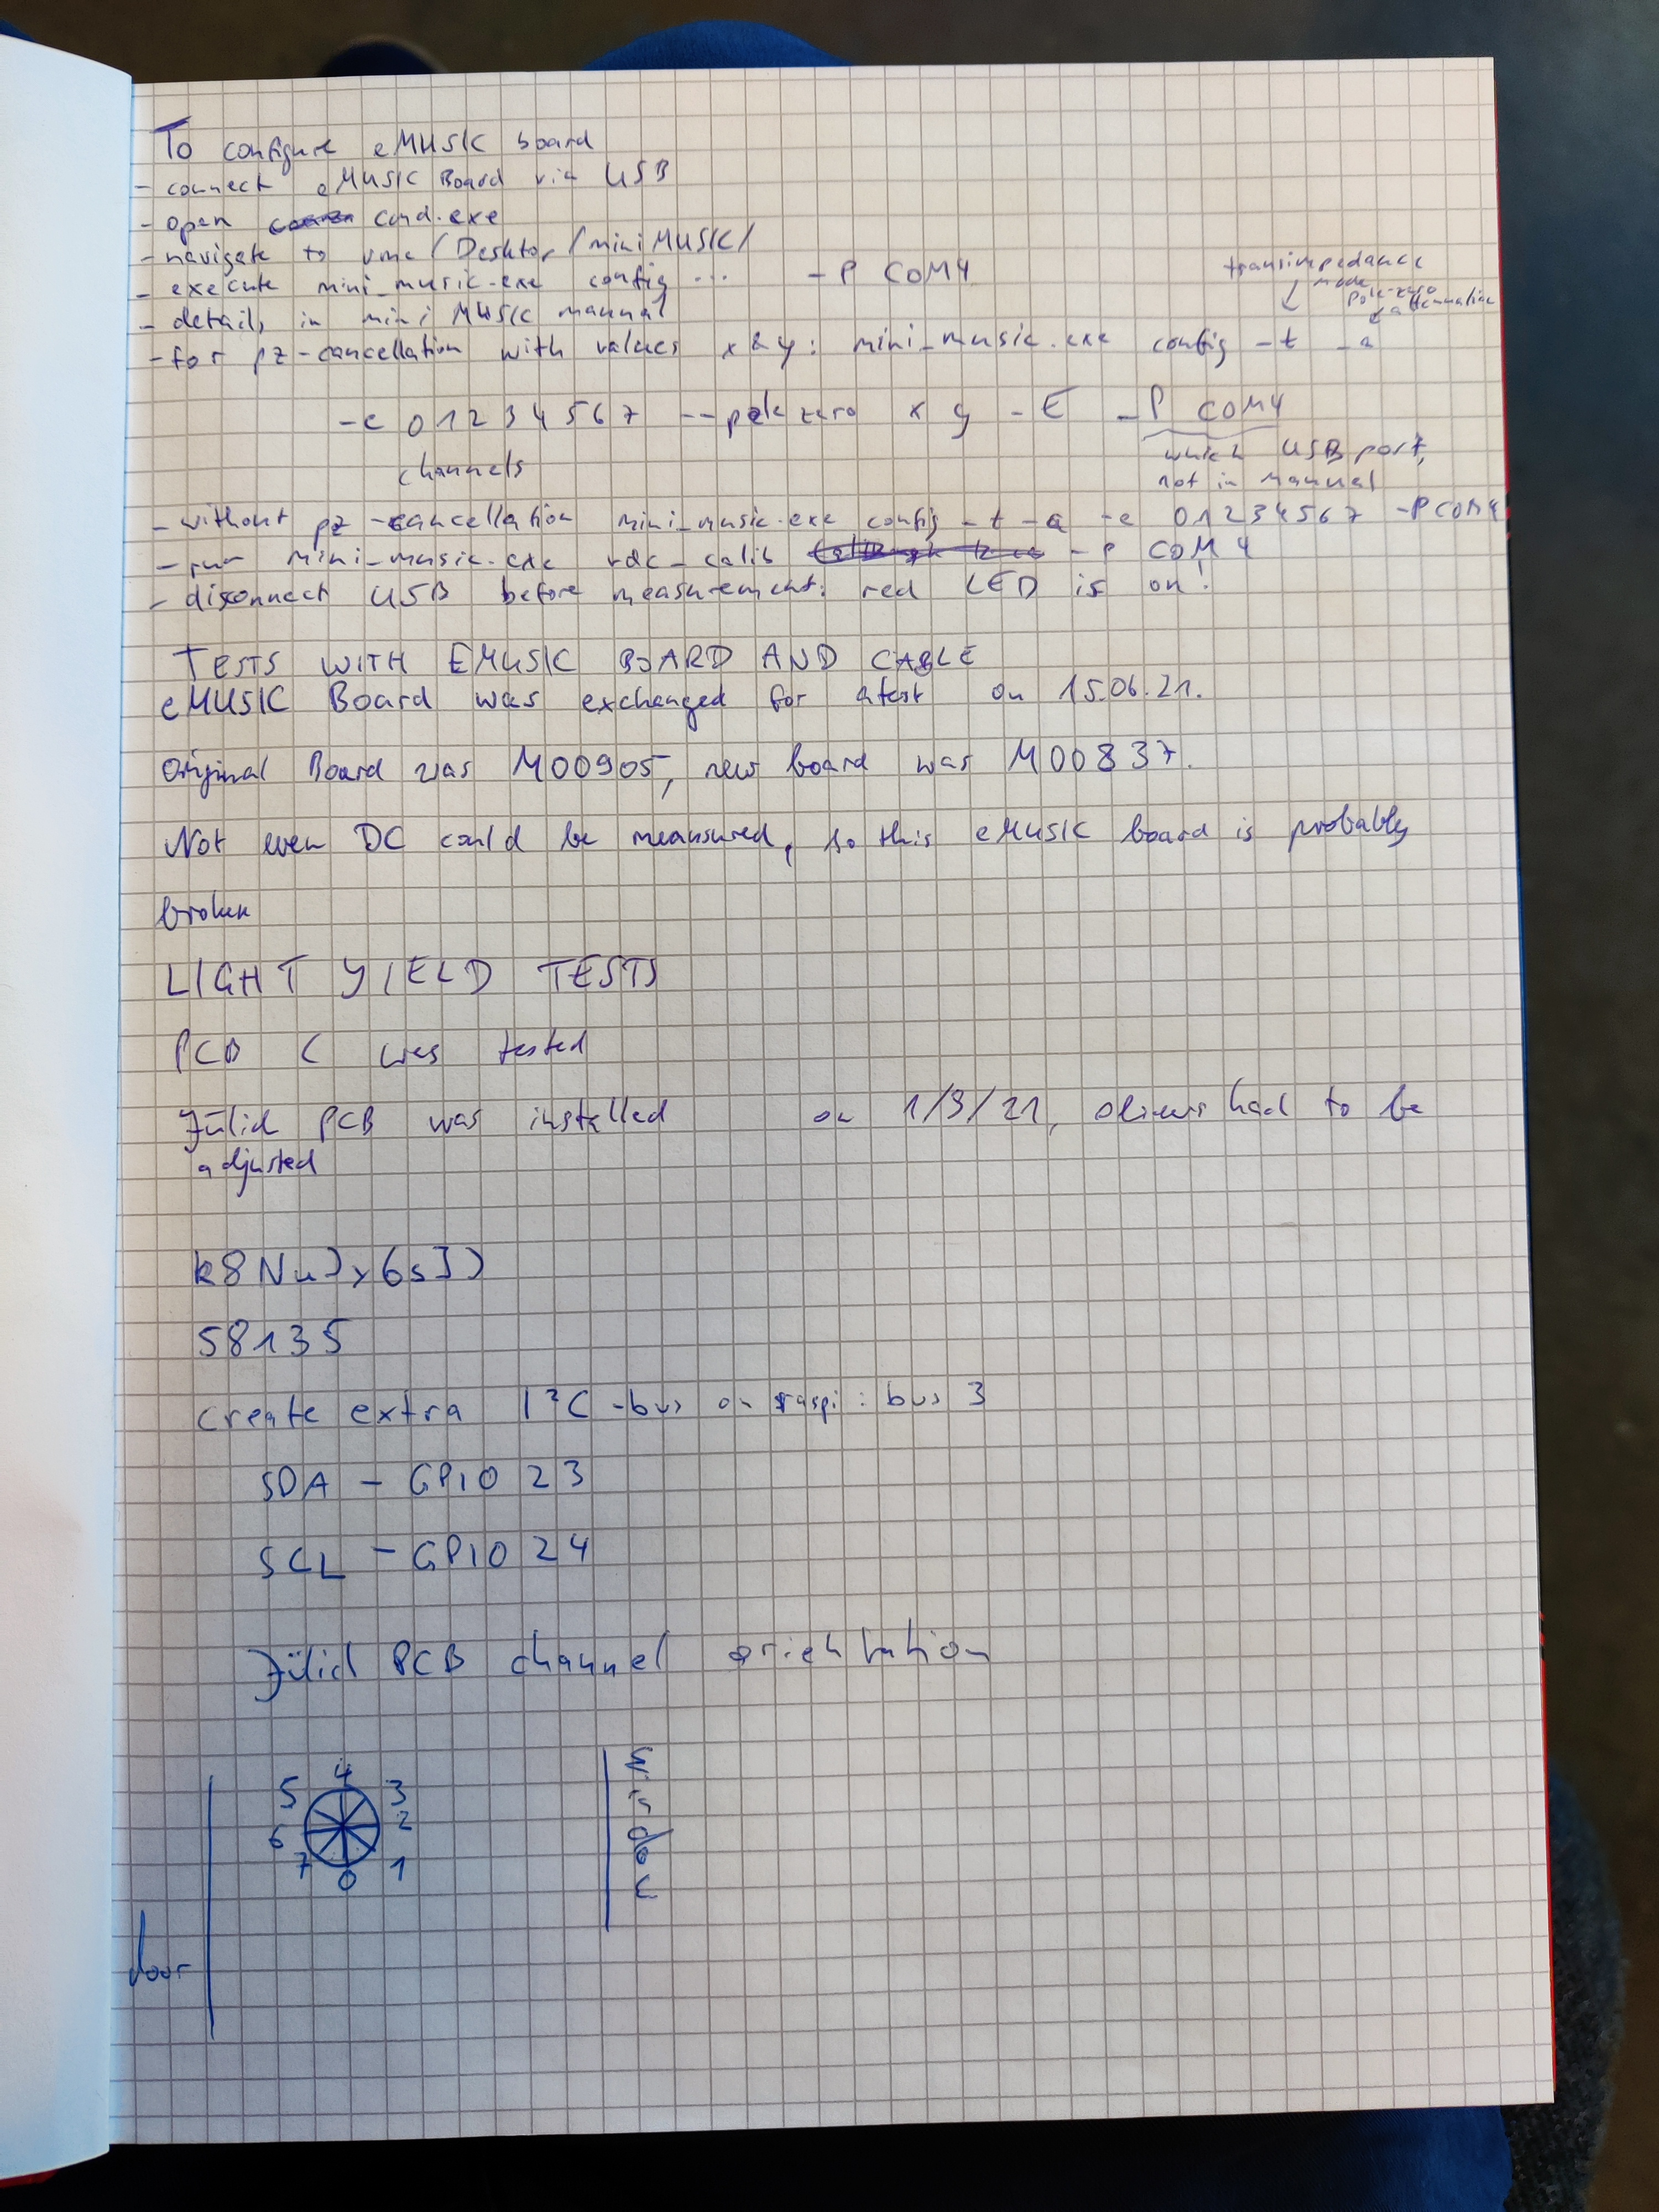 To configure eMUSIC board
- connect eMUSIC Board via USB
- open cmd.exe
- navigate to vme/Desktop/miniMUSIC/
- execute mini_music.exe config ... -P COM4
transimpedance mode
pole-zero attenuation
- details in mini MUSIC manual
- for pz-cancellation with values x & y: mini_music.exe config -t -a
-c 0 1 2 3 4 5 6 7 --pole zero x y -E -P COM4
channels
which USB port,
not in manual
- without pz-cancellation mini_music.exe config -t -a -c 0 1 2 3 4 5 6 7 -P COM4
- run mini_music.exe vdc_calib -P COM4
- disconnect USB before measurement: red LED is on!
TESTS WITH EMUSIC BOARD AND CABLE
eMUSIC Board was exchanged for a test on 15.06.21.
Original Board was M00905, new board was M00837.
Not even DC could be meansured, so this eMUSIC board is probably
broken
LIGHT YIELD TESTS
PCB C was tested
Jülich PCB was installed on 1/9/21, had to be
adjusted
58135
create extra I²C-bus on raspi: bus 3
SDA - GPIO 23
SCL - GPIO 24
Jülich PCB channel orientation
4
5 3
6 2
7 1
0
window
door